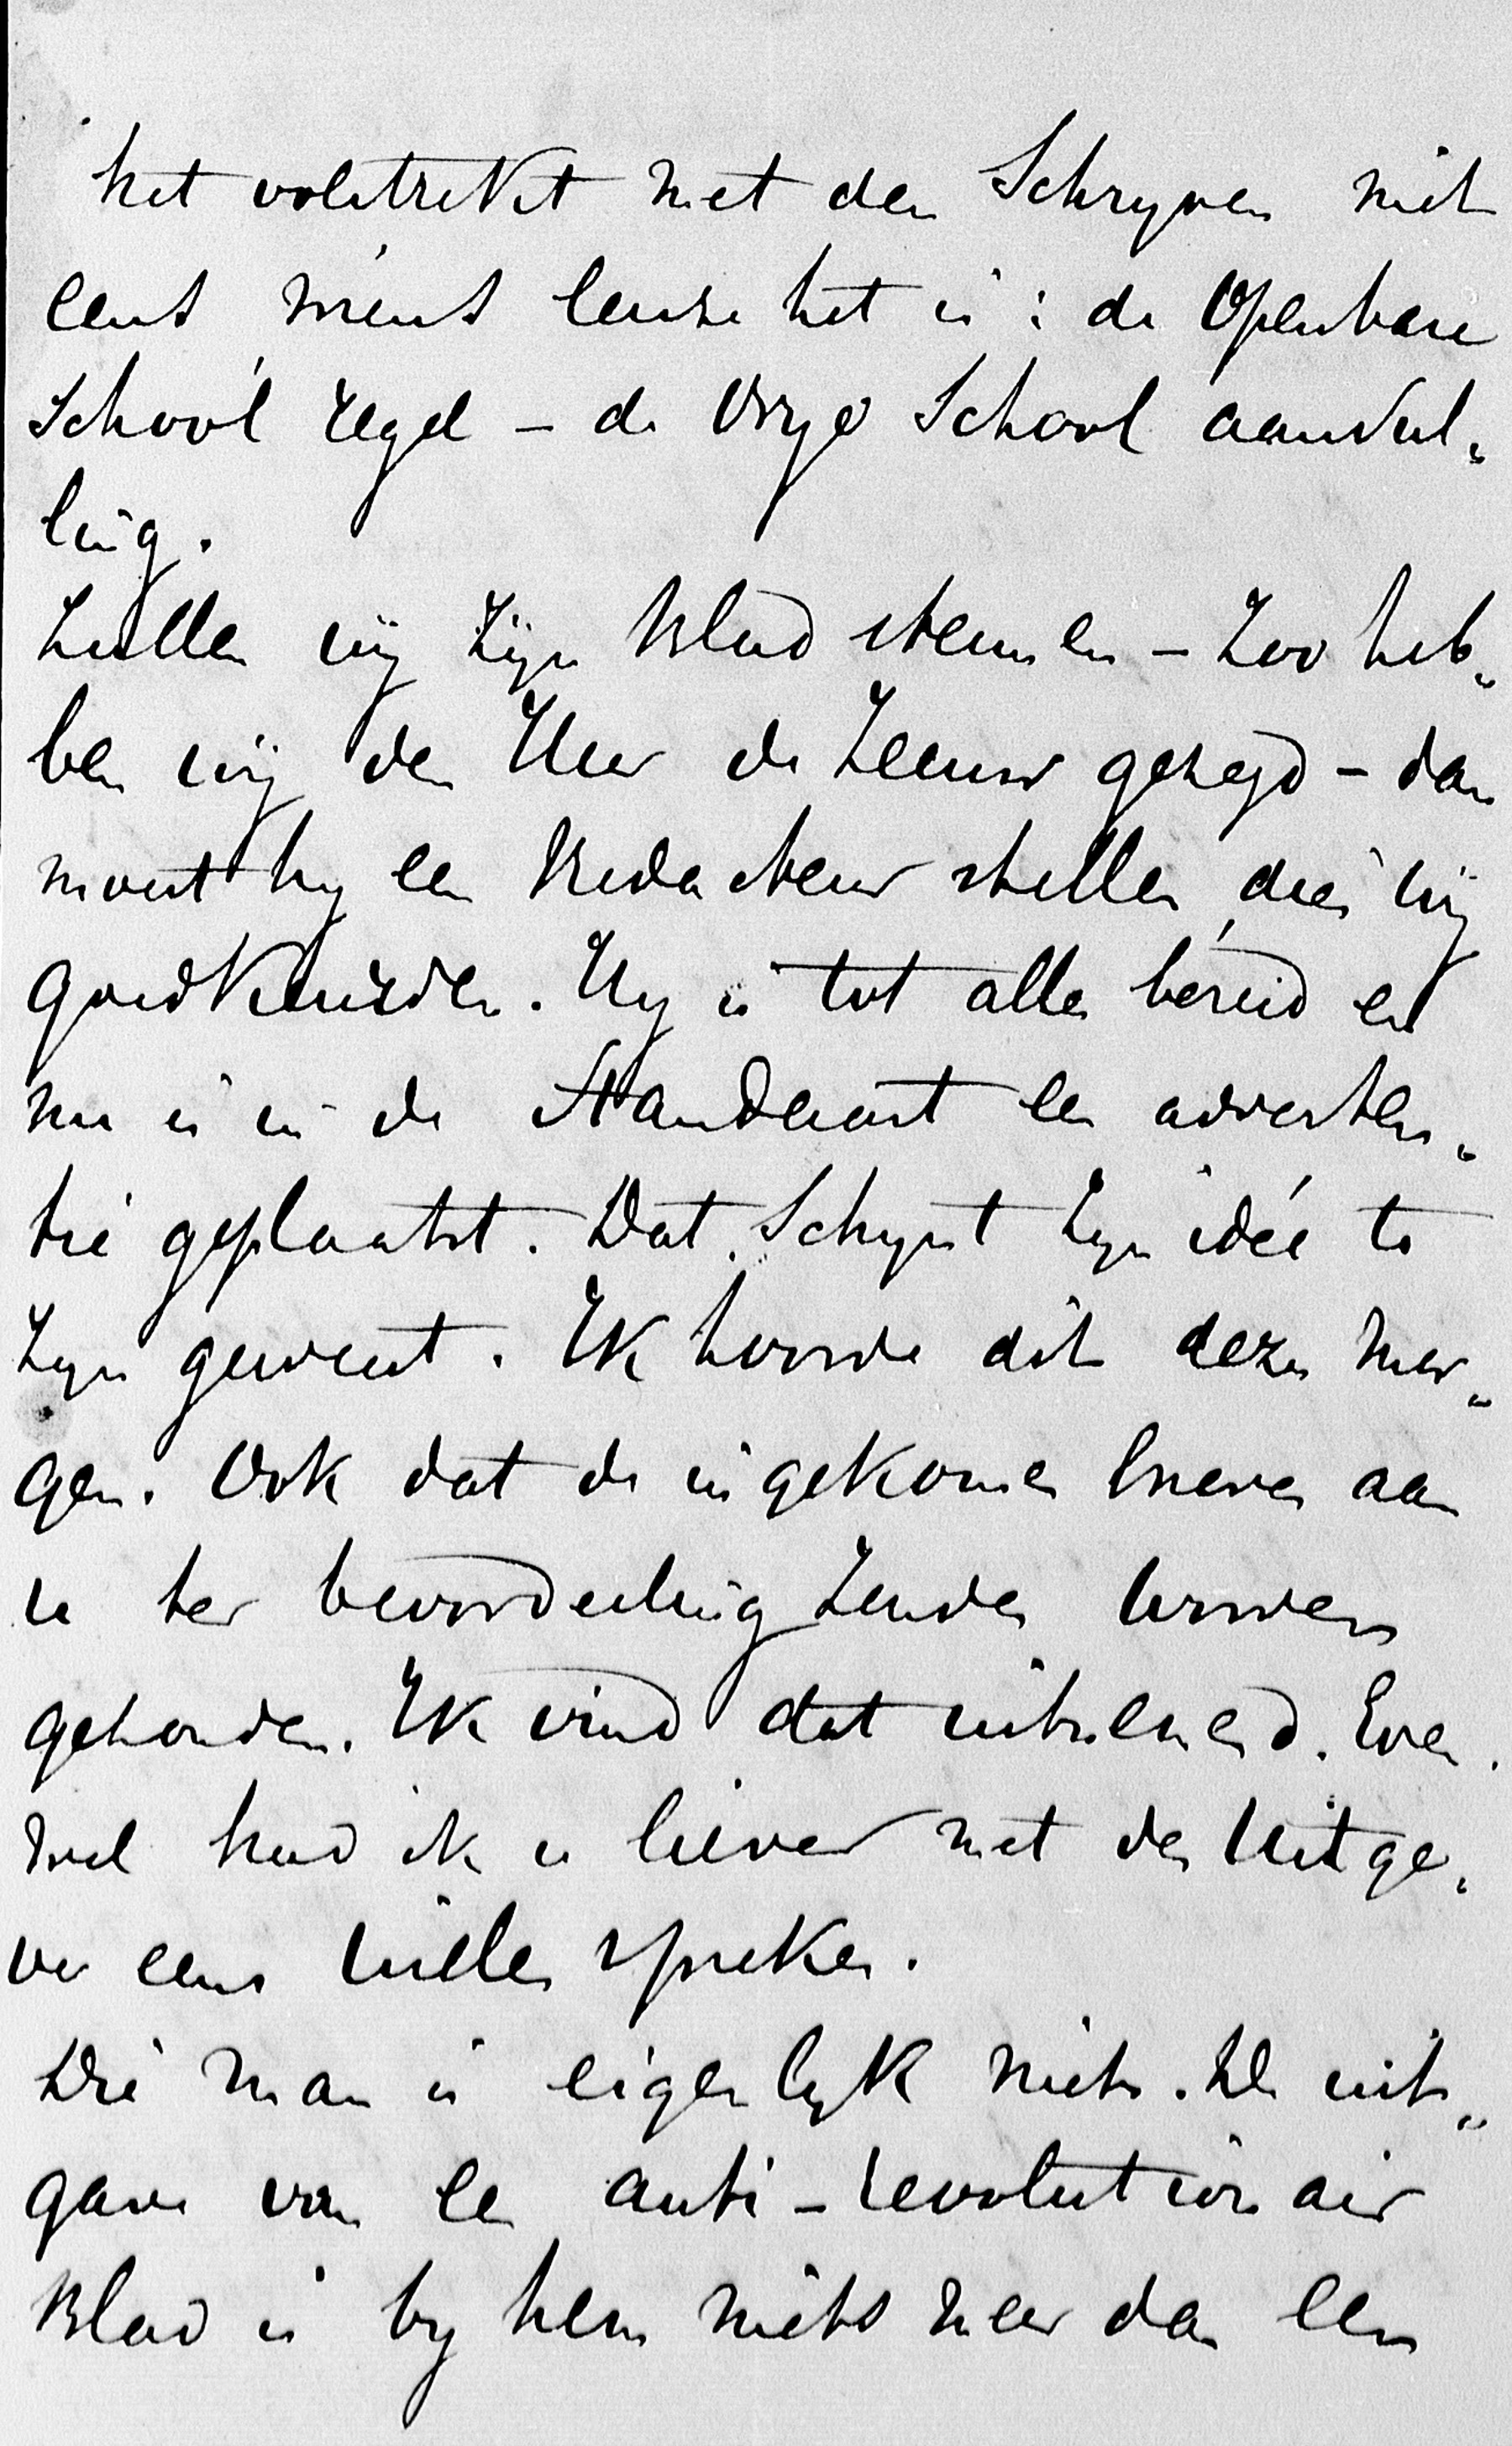 het volstrekt met den Schryver niet
eens wiens leuze het is: de Openbare
School regel – de Vrye School aanvul„
ling.
Zullen wij zijn Blad steunen – zoo heb„
ben wij den Heer de Zeeuw gezegd – dan
moest hy een Redacteur stellen, dien wij
goedkeurden. Hy is tot alles bereid en
nu is in de Standaart een adverten„
tie geplaatst. Dat schynt zyn idée te
zyn geweest. Ik hoorde dit dezen mor„
gen. Ook dat de ingekomen brieven aan
u ter beoordeeling zouden worden
gehouden. Ik vind dat uitnemend. Even„
wel had ik u liever met den Uitge„
ver eens willen spreken.
Die man is eigenlyk niets. De uit„
gave van een anti-revolutionair
Blad is by hem niets meer dan een